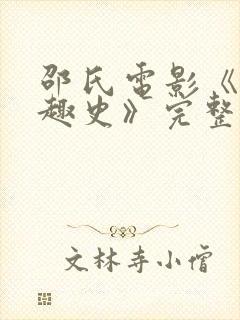 邵氏电影《
趣史》完整
文林寺小僧